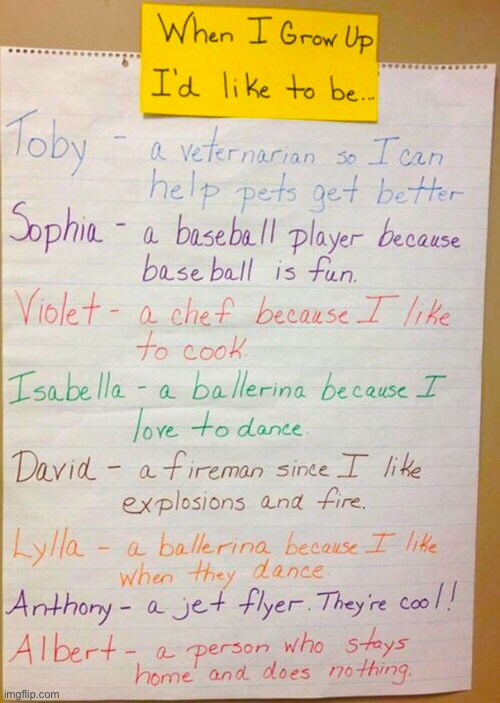 When I Grow Up
I'd like to be...
Toby - a veternarian so I can
help pets get better
Sophia - a baseball player because
baseball is fun.
Violet - a chef because I like
to cook.
Isabella - a ballerina because I
love to dance.
David - a fireman since I like
explosions and fire.
Lylla - a ballerina because I like
when they dance.
Anthony - a jet flyer. They're cool!
Albert - a person who stays
home and does nothing.
imgflip.com